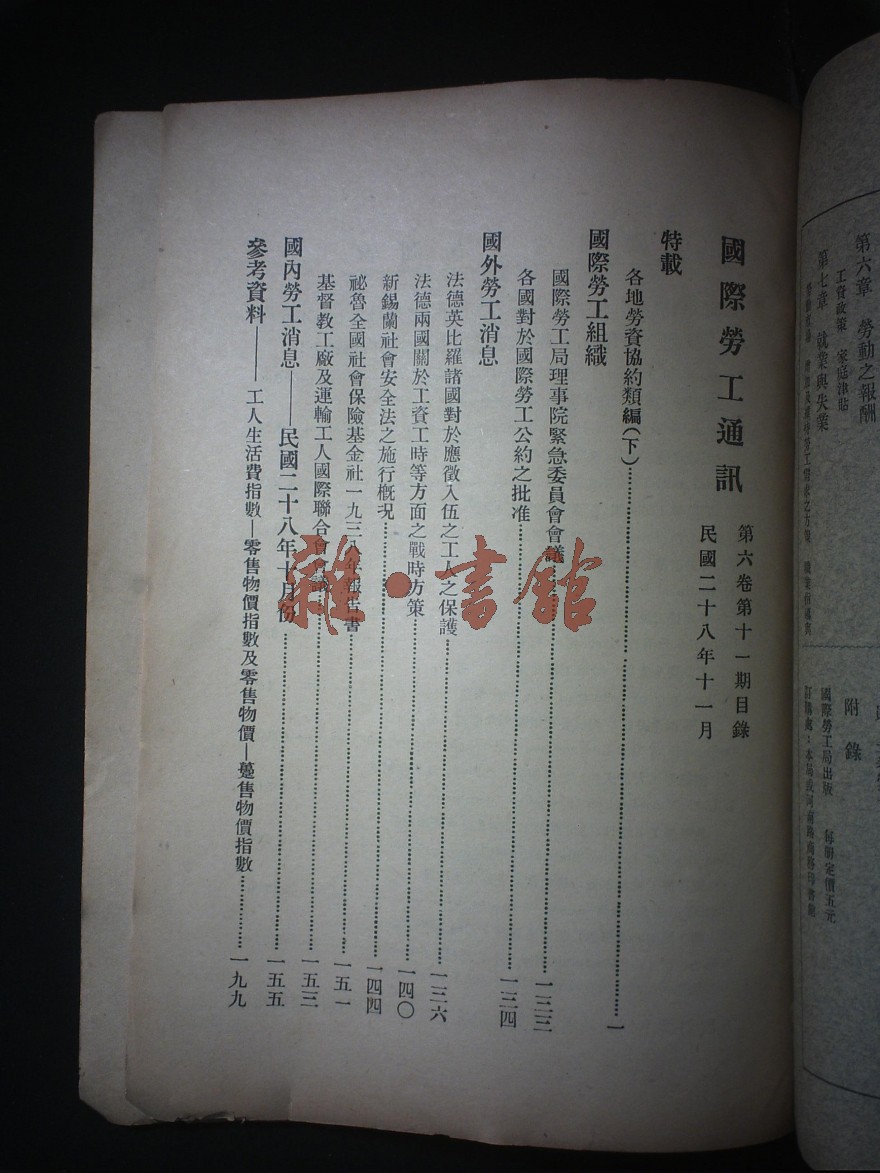 第六章 勞動之報酬
工資政策 家庭津貼
第七章 就業與失業
附錄
國際勞工局出版 每册定價五元
國際勞工通訊
第六卷第十一期目錄
民國二十八年十一月
特載
各地勞資協約類編(下)……一
國際勞工組織
國際勞工局理事院緊急委員會會議……一三三
各國對於國際勞工公約之批准……一三四
國外勞工消息
法德英比羅諸國對於應徵入伍之工人之保護……一三六
法德兩國關於工資工時等方面之戰時方策……一四〇
新錫蘭社會安全法之施行概況……一四四
祕魯全國社會保險基金社一九三八年報告書……一五一
基督教工廠及運輸工人國際聯合會……一五三
國內勞工消息——民國二十八年十月份……一五五
參考資料——工人生活費指數—零售物價指數及零售物價—躉售物價指數……一九九
雜·書館